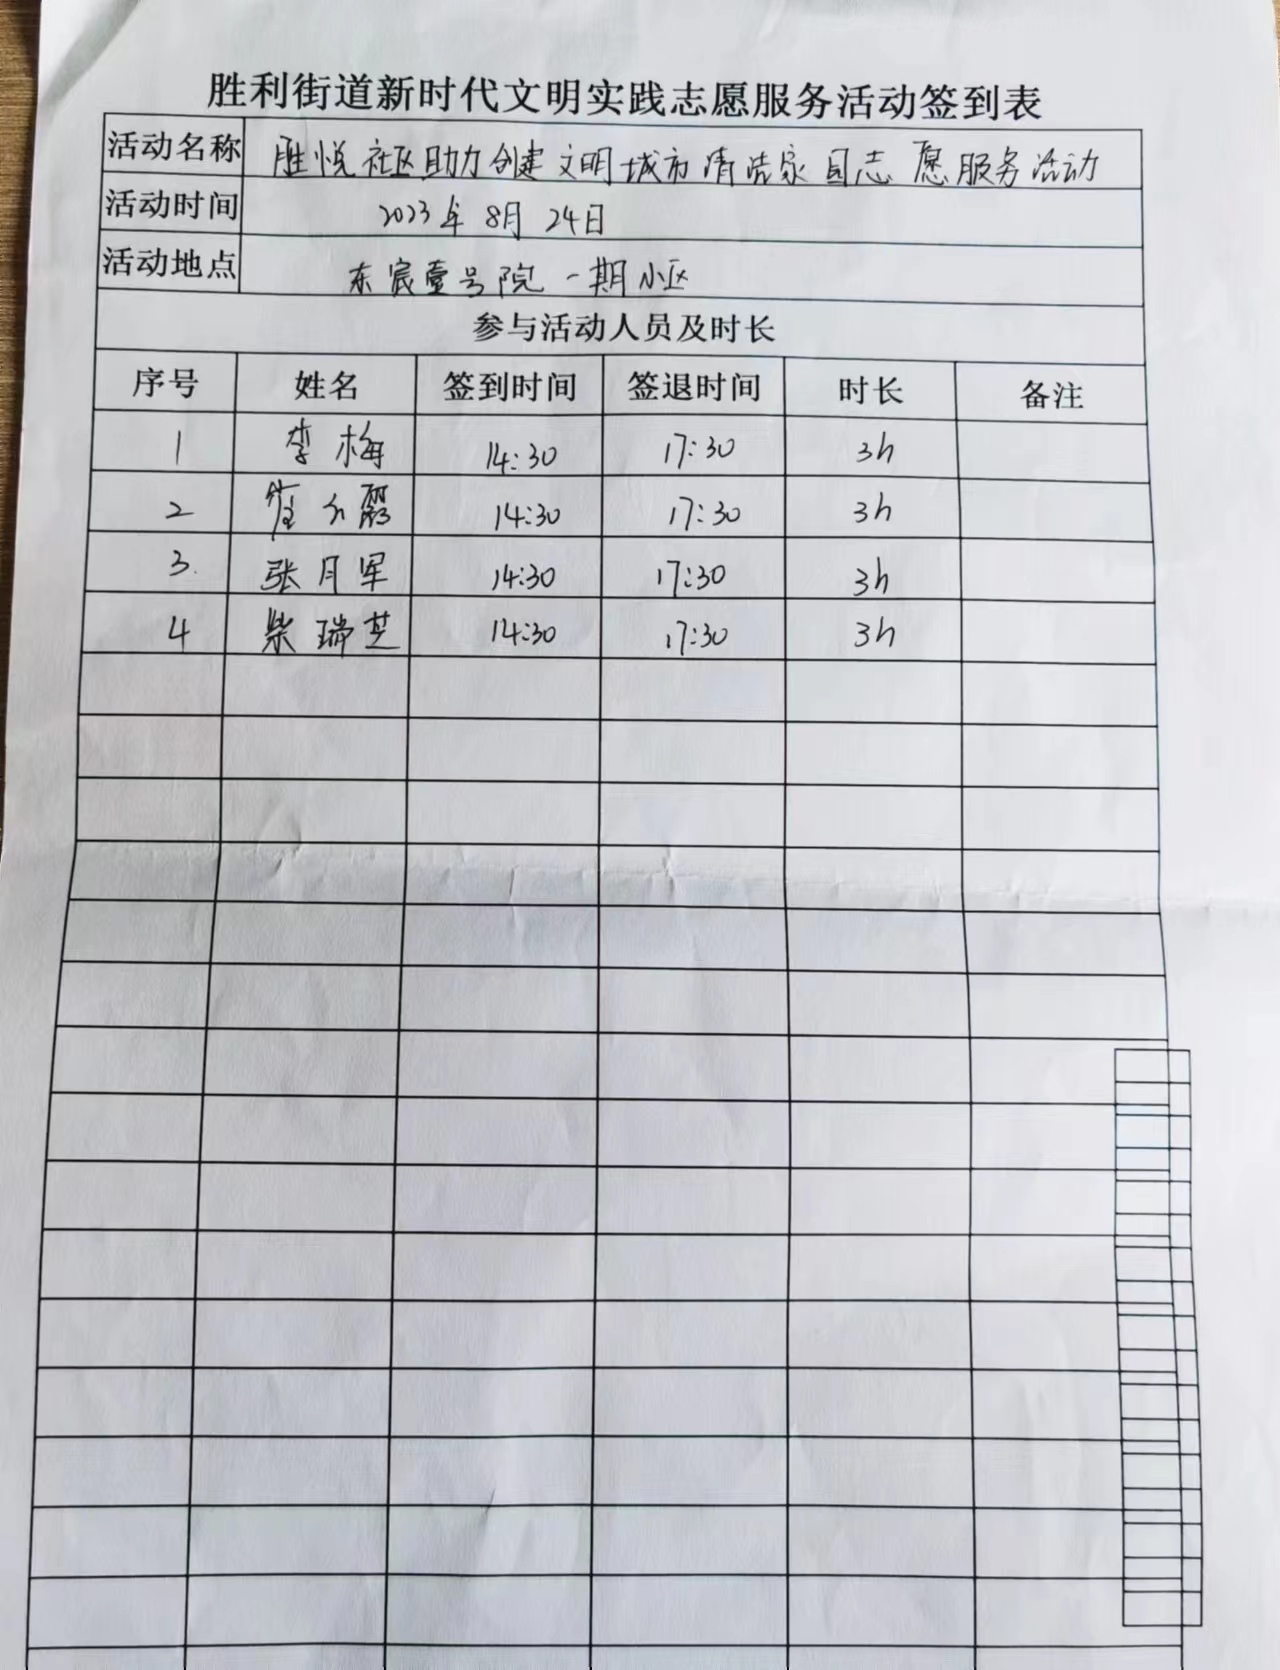 胜利街道新时代文明实践志愿服务活动签到表
活动名称 胜悦社区助力创建文明城市清洁家园志愿服务活动
活动时间 2023年8月24日
活动地点 东宸壹号院一期小区
参与活动人员及时长
序号 姓名 签到时间 签退时间 时长 备注
1 李梅 14:30 17:30 3h
2 崔 14:30 17:30 3h
3. 张月军 14:30 17:30 3h
4 柴瑞芝 14:30 17:30 3h